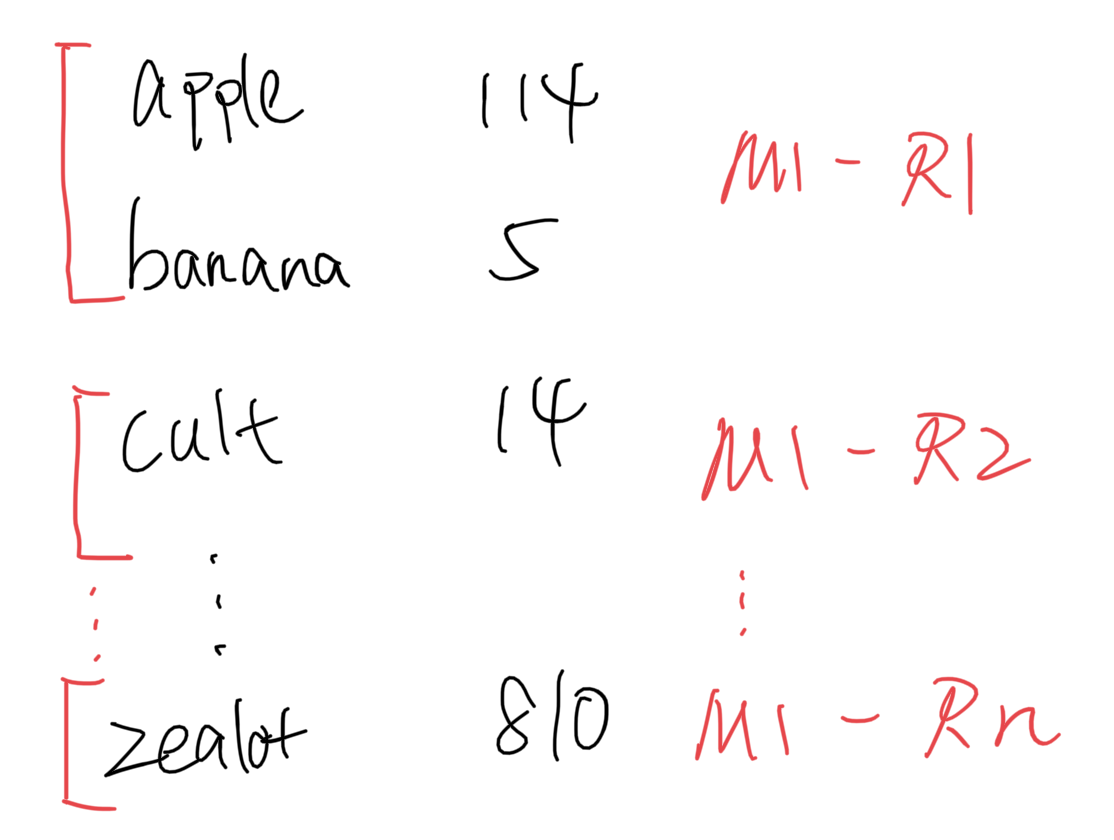 apple 114
M1 - R1
banana 5
cult 14
M1 - R2
zealot 810 M1 - Rn